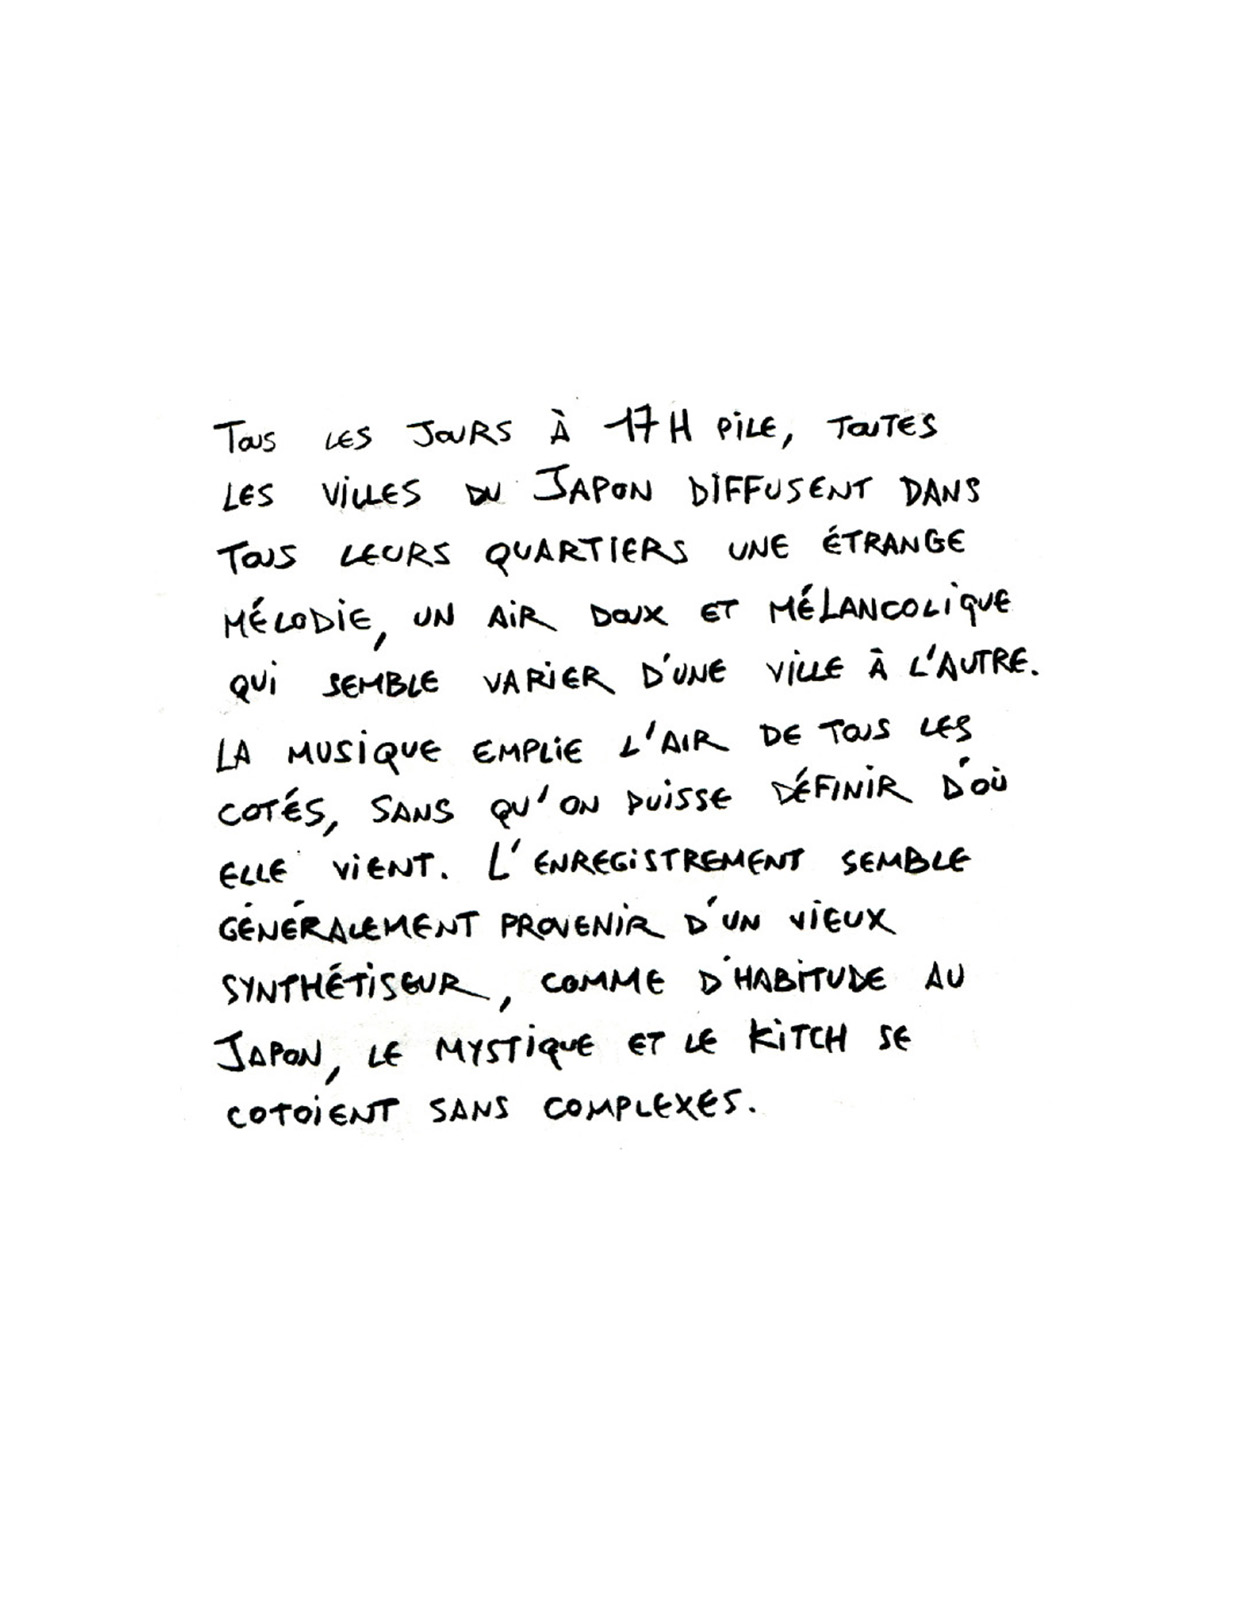 Tous les jours à 17h pile, toutes
les villes du Japon diffusent dans
tous leurs quartiers une étrange
mélodie, un air doux et mélancolique
qui semble varier d'une ville à l'autre.
La musique emplie l'air de tous les
cotés, sans qu'on puisse définir d'où
elle vient. L'enregistrement semble
généralement provenir d'un vieux
synthétiseur, comme d'habitude au
Japon, le mystique et le kitch se
cotoient sans complexes.